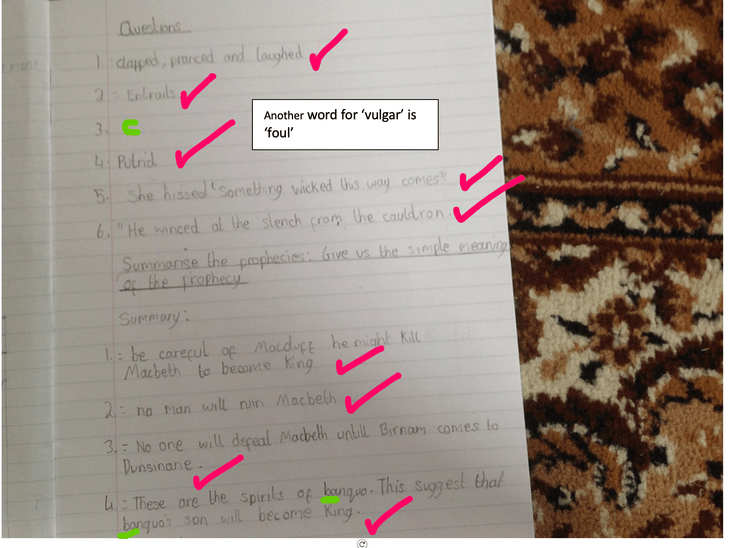 Questions
1. clapped, pranced and laughed
2 = Entrails
3.
Another word for 'vulgar' is
'foul'
4. Putrid
5. She hissed "Something wicked this way comes"
6. "He winced at the stench from the cauldron
Summarise the prophecies: Give us the simple meaning
of the prophecy
Summary:
1. = be careful of Macduff he might kill
Macbeth to become King
2. = no man will ruin Macbeth
3. = No one will defeat Macbeth untill Birnam comes to
Dunsinane.
4. = These are the spirits of banquo. This suggest that
banquo's son will become King.